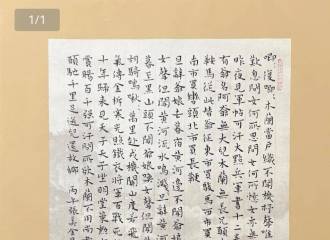 1/1
唧復唧木蘭當戶織不聞機杼聲惟
歎息問女何所思問女何所憶女亦無
昨夜見軍帖可汗大點兵軍書十二
有爺名阿爺無大兒木蘭無長兄
鞍馬從此替爺征東市買駿馬西市買
南市買轡頭北市買長鞭
旦辭爺娘去暮宿黃河邊不聞爺孃
女聲但聞黃河流水鳴濺旦辭黃河
暮至黑山頭不聞爺孃喚女聲但聞
胡騎鳴啾萬里赴戎機關山度若飛
氣傳金柝寒光照鐵衣將軍百戰死
十年歸來見天子天子坐明堂策勳
賞賜百千強可汗問所欲木蘭不用尚書
願馳千里足送兒還故鄉 丙午